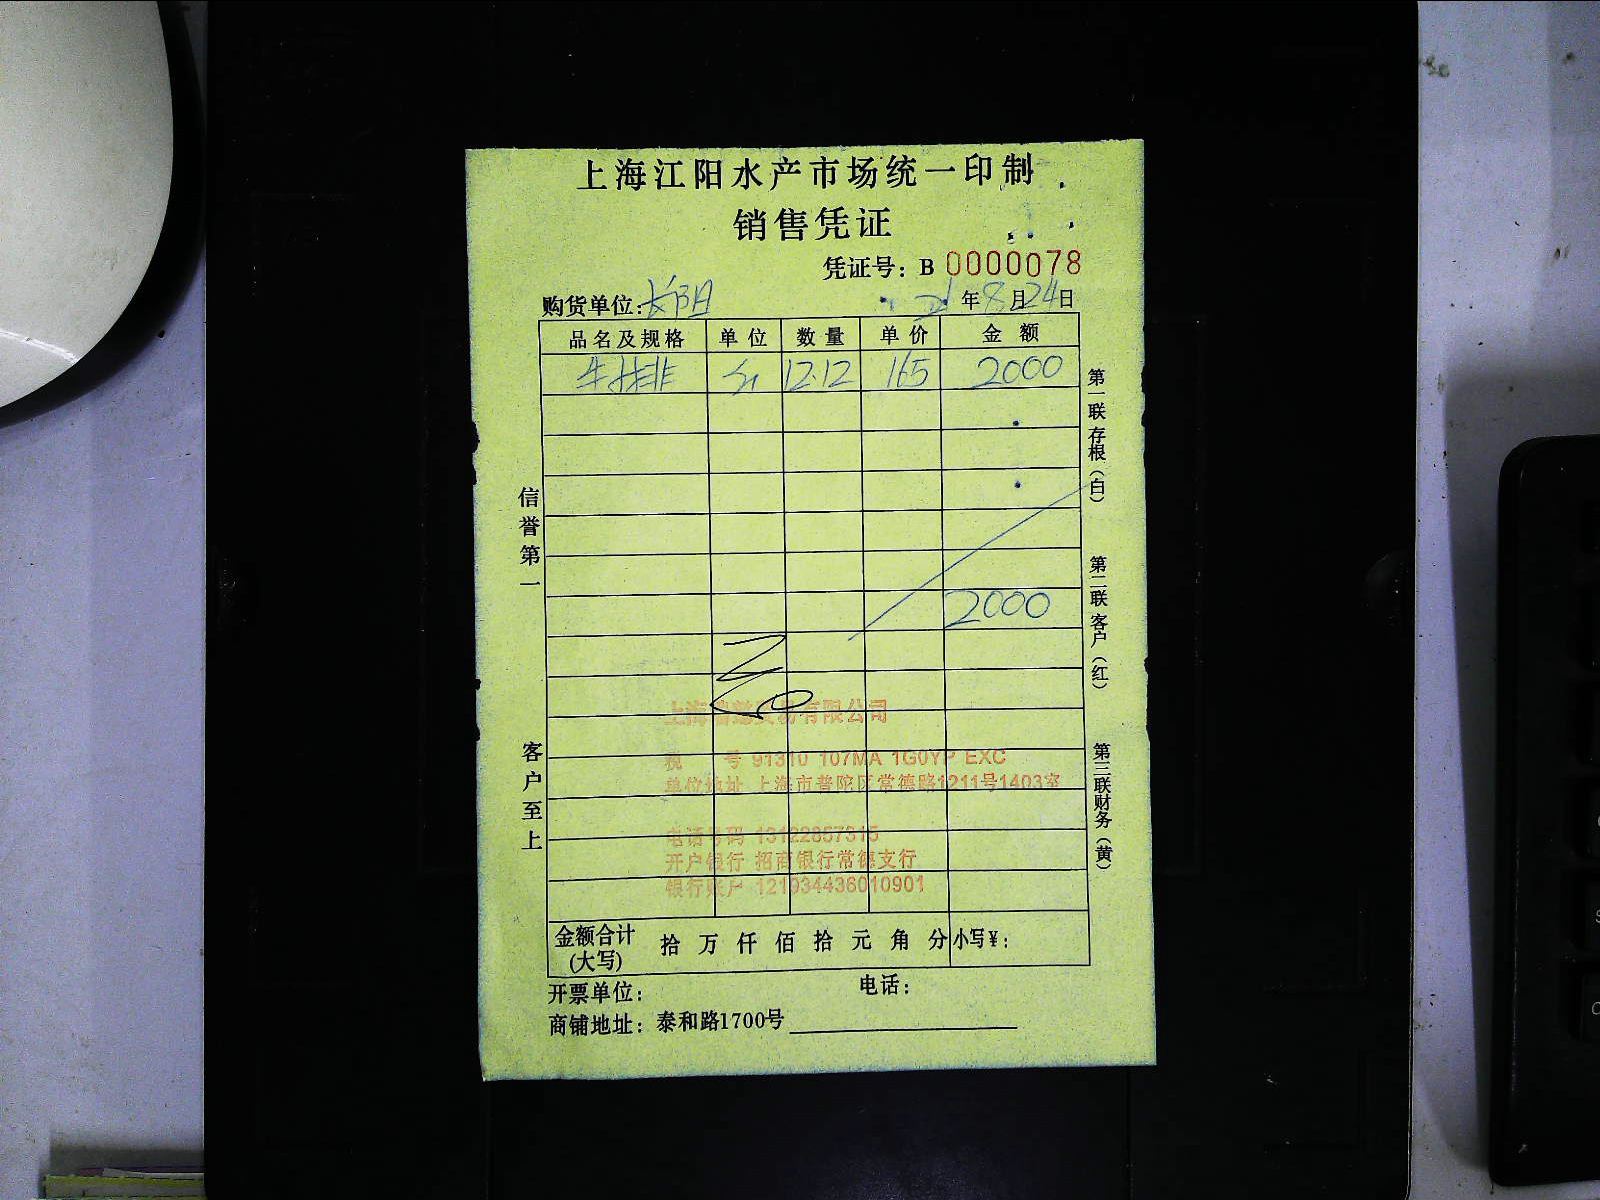 上海江阳水产市场统一印制
销售凭证
凭证号：B 0000078
购货单位：长阳 21年8月24日
品名及规格 单位 数量 单价 金额
牛排 12.12 165 2000
2000
信誉第一
客户至上
第一联存根（白）
第二联客户（红）
第三联财务（黄）
上海 贸易有限公司
税 号 91310 107MA 1G0YP EXC
单位地址 上海市普陀区常德路1211号1403室
电话号码 13122857315
开户银行 招商银行常德支行
银行账户 121934436010901
金额合计(大写) 拾 万 仟 佰 拾 元 角 分 小写¥：
开票单位： 电话：
商铺地址：泰和路1700号